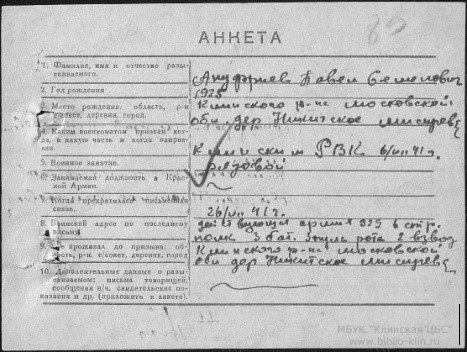 АНКЕТА
1. Фамилия, имя и отчество разыскиваемого.
Ануфриев Павел Семенович
2. Год рождения
1925
3. Место рождения: область, р-н
с/совет, деревня, город.
Клинского р-на московской
обл дер Никитское
4. Каким военкоматом призван
когда, в какую часть и когда направлен.
Клинским РВК 6/VII 41 г.
5. Военное звание.
рядовой
6. Занимаемая должность в Красной Армии.
7. Когда прекратилась письменная
связь.
26/VII 41 г.
8. Воинский адрес по последнему
письму
действующая армия 6 стр.
полк 3 бат. рота 2 взвод
9. Где проживал до призыва: область, р-н, с/совет, деревня, город
Клинского р-на московской
обл дер Никитское
10. Дополнительные данные о разыскиваемом: письма товарищей,
сообщения в/ч. свидетельские показания и др. (приложить к анкете).
МБУК "Клинская ЦБС"
www.biblio-klin.ru